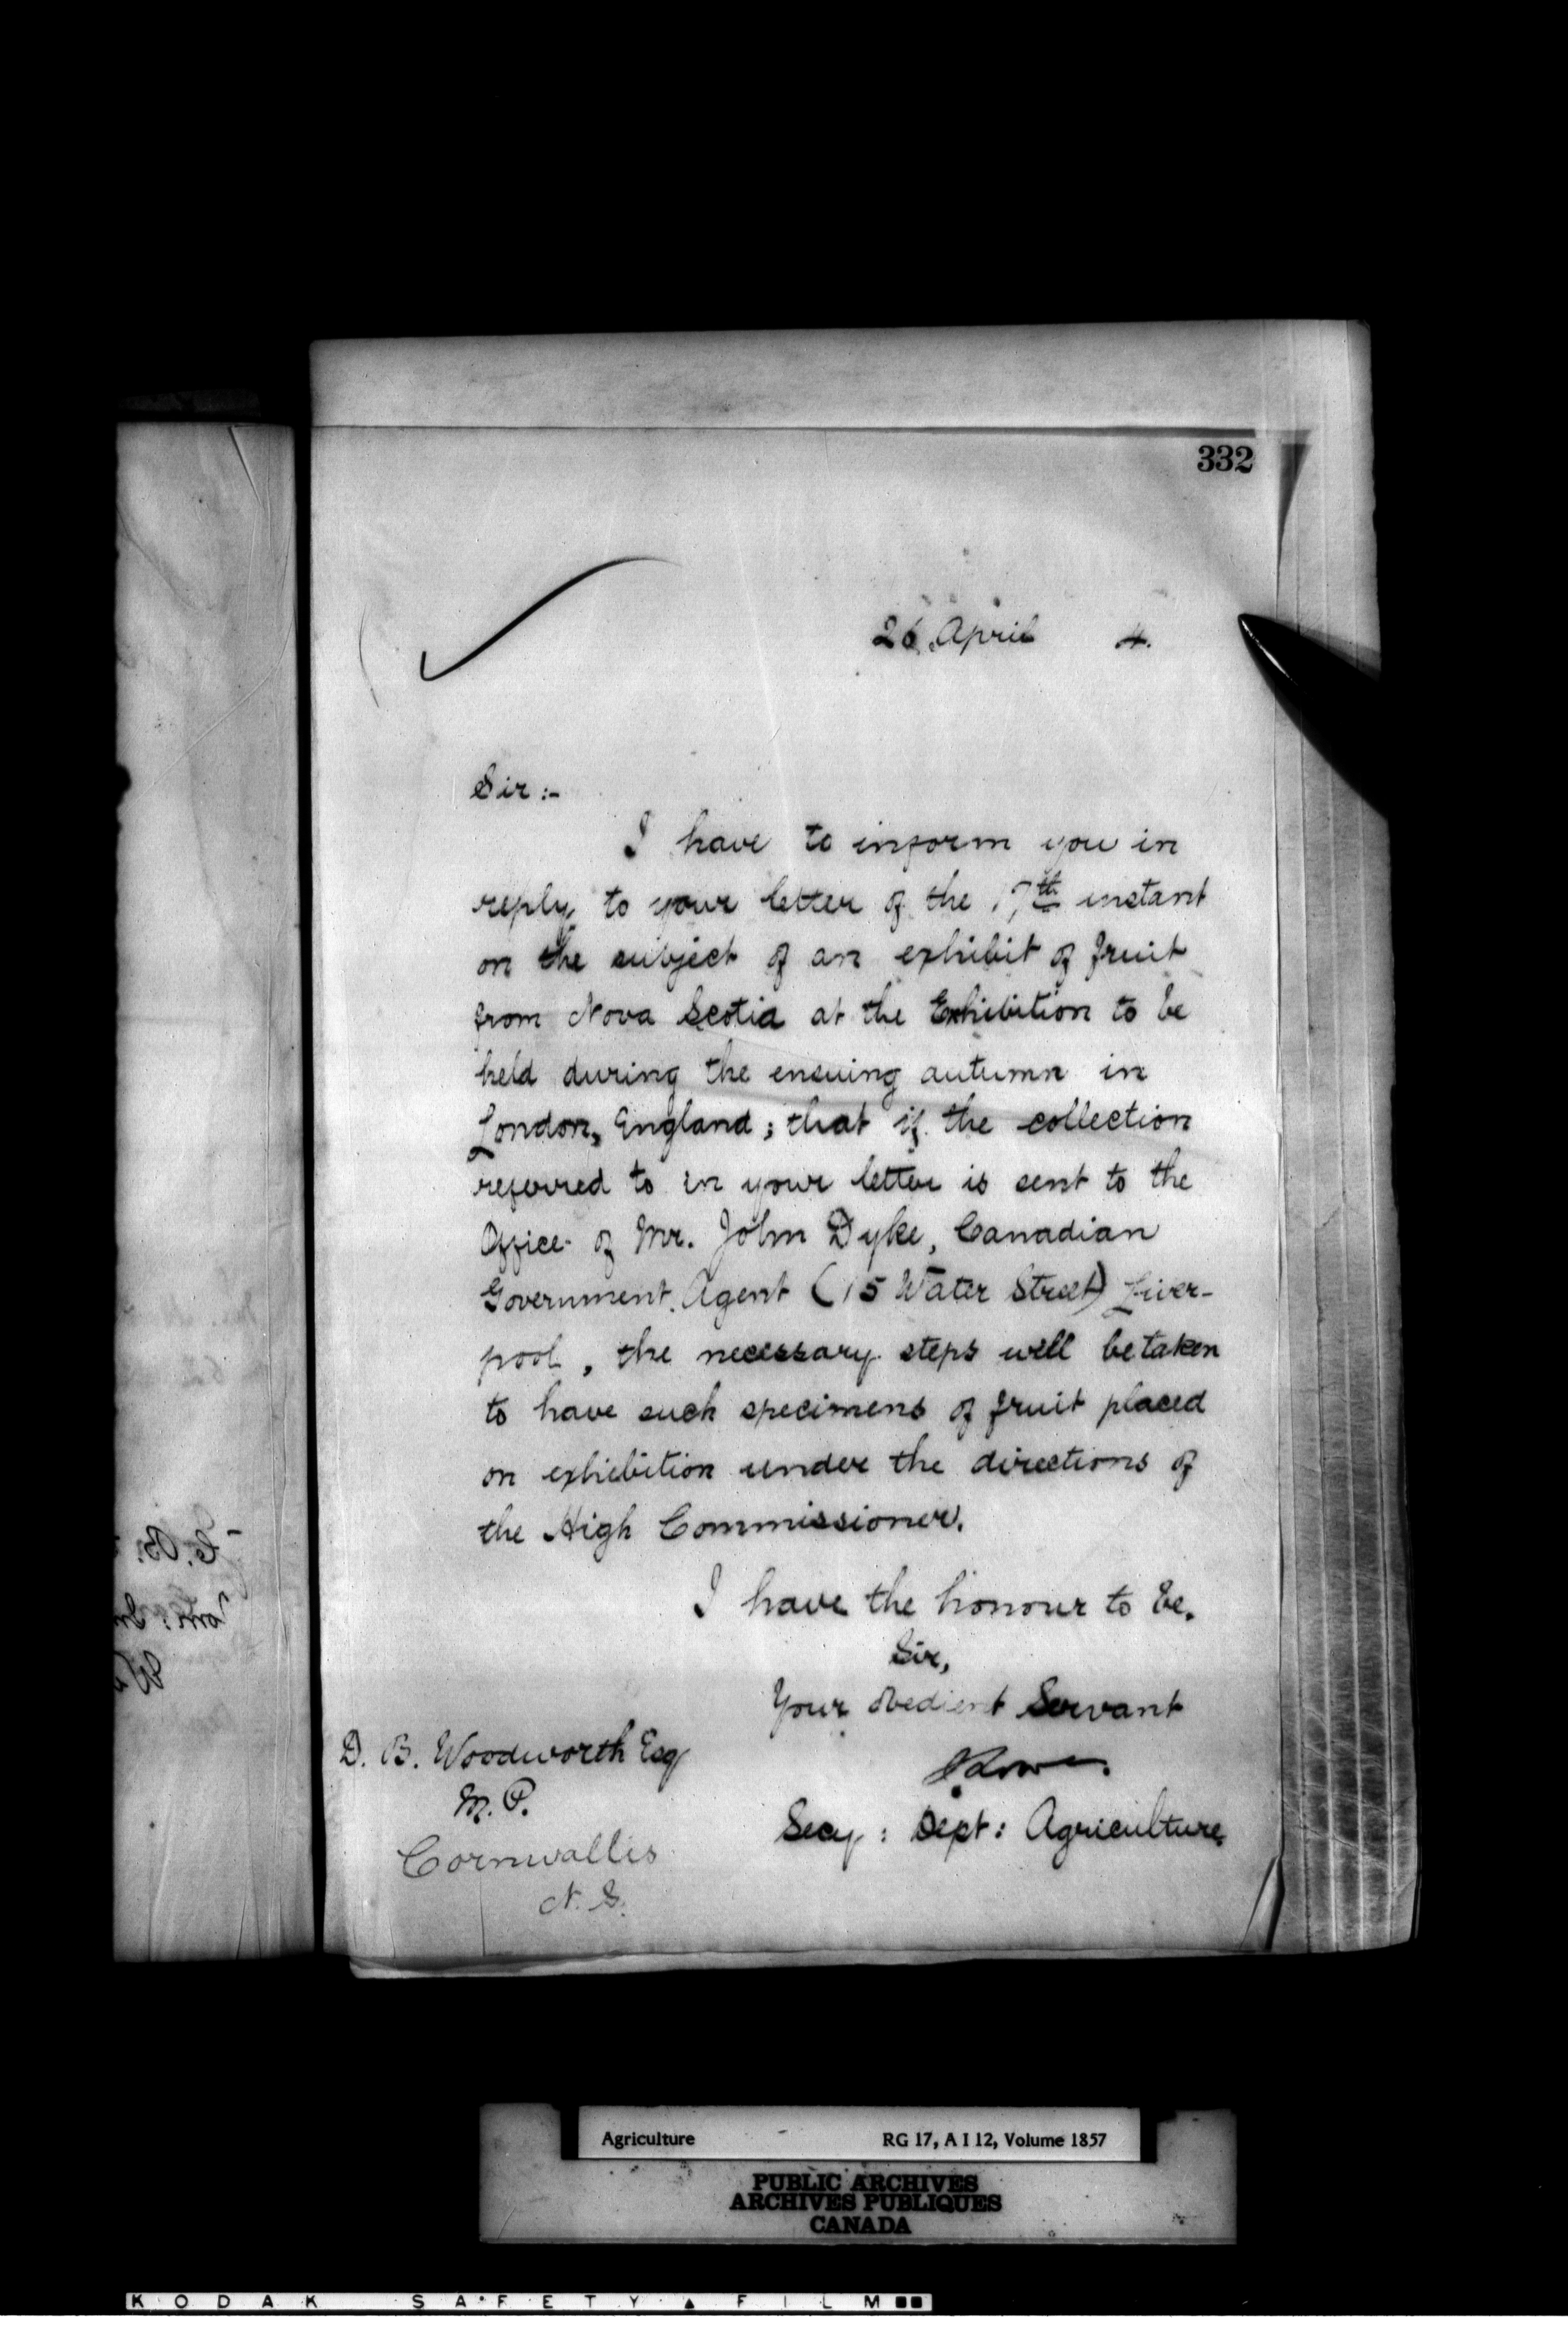 332
26 April 4.
Sir:-
I have to inform you in
reply to your letter of the 17th instant
on the subject of an exhibit of fruit
from Nova Scotia at the Exhibition to be
held during the ensuing autumn in
London, England; that if the collection
referred to in your letter is sent to the
Office of Mr. John Dyke, Canadian
Government Agent (15 Water Street) Liver-
pool, the necessary steps will be taken
to have such specimens of fruit placed
on exhibition under the directions of
the High Commissioner.
I have the honour to be.
Sir,
Your obedient Servant
J Lowe.
Secy: Dept: Agriculture
D. B. Woodworth Esq
M. P.
Cornwallis
N. S.
Agriculture RG 17, A I 12, Volume 1857
PUBLIC ARCHIVES
ARCHIVES PUBLIQUES
CANADA
KODAK SAFETY FILM